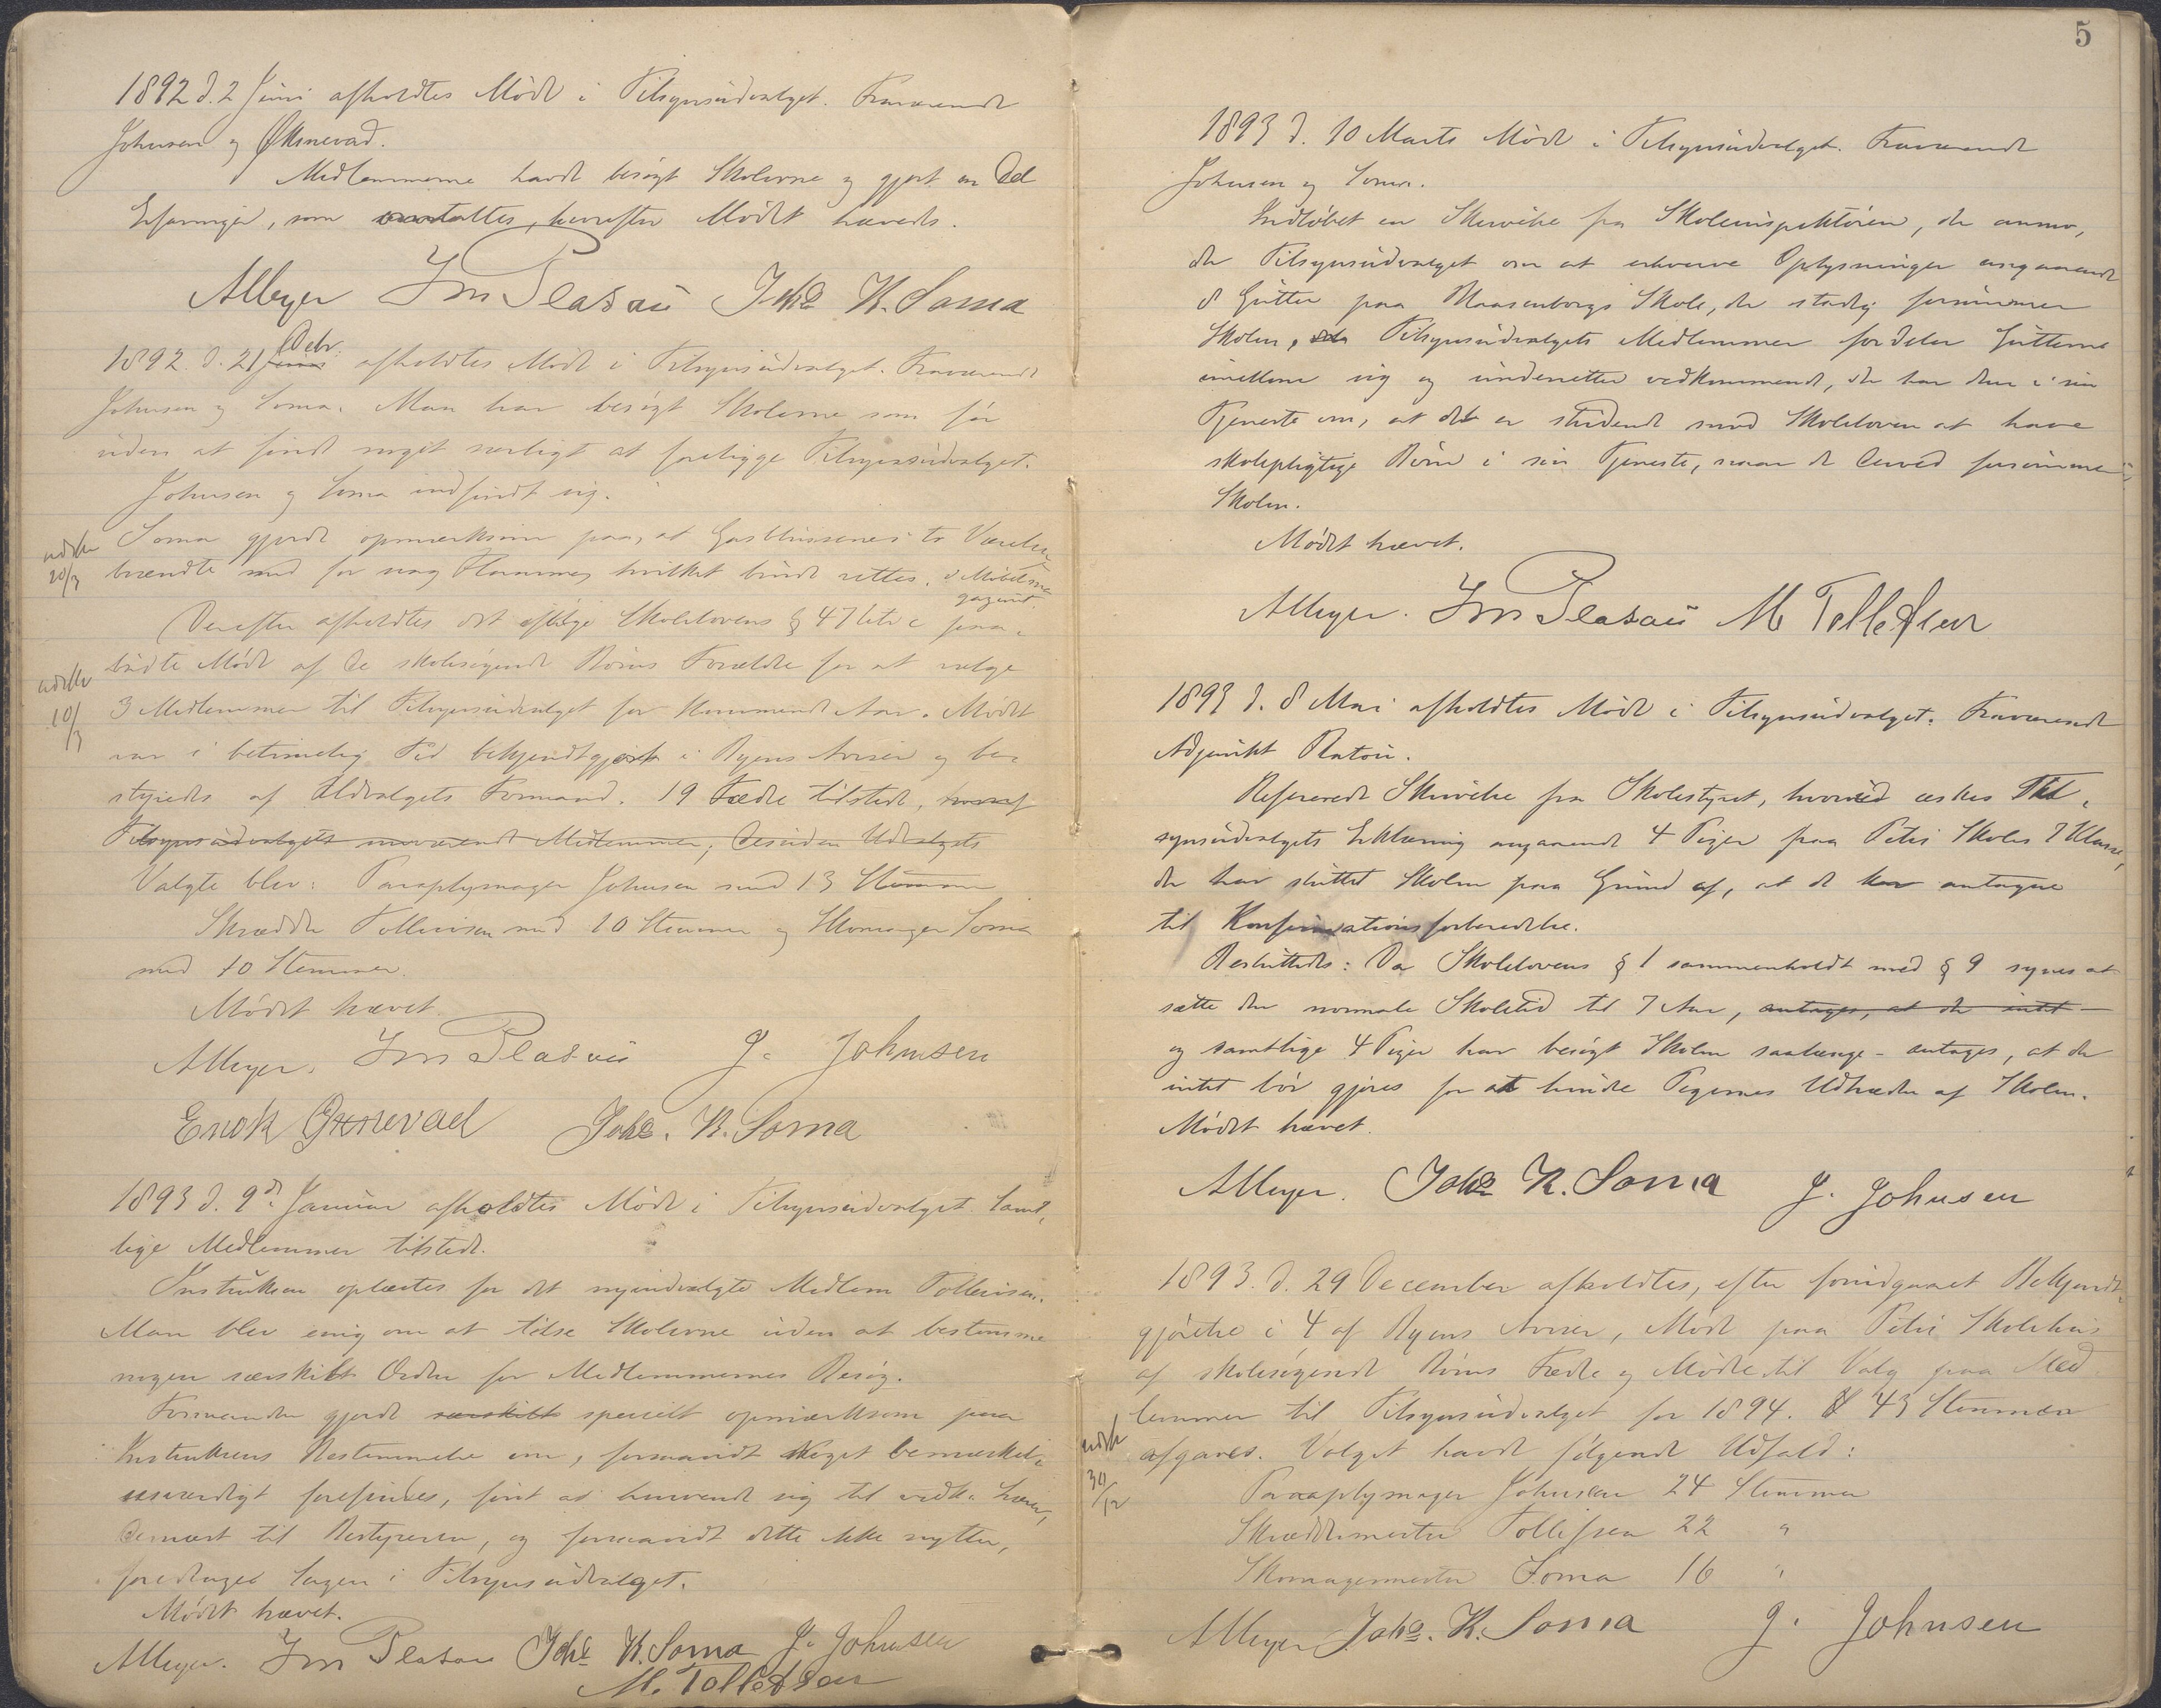 1892 d. 2 Juni afholdtes Møde i Tilsynsudvalget. Fraværende
Johnsen og Øksnevad.
Medlemmerne havde besøgt Skolerne og gjort en Del
Erfaringer, som omtaltes, hvorefter Mødet hævedes.
AMeyer Im Platou Johs K. Soma
Debr.
1892. d. 21 Juni afholdtes Møde i Tilsynsudvalget. Fraværende
Johnsen og Soma. Man har besøgt Skolerne som før
uden at finde noget særligt at forelægge Tilsynsudvalget.
Johnsen og Soma indfandt sig.
Soma gjorde opmærksom paa, at Gasblussene i to Værelser
brændte med for svag Flamme, hvilket burde rettes. i Møbelma
gazinet.
Derefter afholdtes det ifølge Skolelovens § 47 litr c paa-
budte Møde af de skolesøgende Børns Forældre for at vælge
3 Medlemmer til Tilsynsudvalget for kommende Aar. Mødet
var i betimelig Tid bekjendtgjort i Byens Aviser og be-
styredes af Udvalgets Formand. 19 Fædre tilstede, hvoraf
Tilsynsudvalgets nuværende Medlemmer, desuden Udvalgets
Valgte blev: Paraplymager Johnsen med 13 Stemmer
Skrædder Tollevsen med 10 Stemmer og Skomager Soma
med 10 Stemmer.
Mødet hævet.
AMeyer. Im Platou J. Johnsen
Enok Øxnevad Johs. K. Soma
1893 d. 9de Januar afholdtes Møde i Tilsynsudvalget. Samt-
lige Medlemmer tilstede.
Instruksen oplæstes for det nyindvalgte Medlem Tollevsen.
Man blev enig om at tilse Skolerne uden at bestemme
nogen særskilt Orden for Medlemmernes Besøg.
Formanden gjorde særskilt specielt opmærksom paa
Instruksens Bestemmelse om, forsaavidt noget bemærkel-
sesværdigt forefindes, først at henvende sig til vedk. Lærer,
dernæst til Bestyreren, og forsaavidt dette ikke nytter,
foredrages Sagen i Tilsynsudvalget.
Mødet hævet.
AMeyer. Im Platou Johs K. Soma J. Johnsen
M. Tollefsen
5
1893 d. 10 Marts Møde i Tilsynsudvalget. Fraværende
Johnsen og Soma.
Indløbet en Skrivelse fra Skoleinspektøren, der anmo-
der Tilsynsudvalget om at erhverve Oplysninger angaaende
8 Gutter paa Skole, der stadig forsømmer
Skolen, Tilsynsudvalgets Medlemmer fordeler Gutterne
imellem sig og underretter vedkommende, der har dem i sin
Tjeneste om, at det er stridende mod Skoleloven at have
skolepligtige Børn i sin Tjeneste, naar de derved forsømmer
Skolen.
Mødet hævet.
AMeyer. Im Platou M Tollefsen
1893 d. 8 Mai afholdtes Møde i Tilsynsudvalget. Fraværende
Adjunkt Platou.
Refereredes Skrivelse fra Skolestyret, hvorved æskes Til-
synsudvalgets Erklæring angaaende 4 Piger paa Petri Skoles 7 Klasse,
der har sluttet Skolen paa Grund af, at de er antagne
til Konfirmationsforberedelse.
Besluttedes: Da Skolelovens § 1 sammenholdt med § 9 synes at
sætte den normale Skoletid til 7 Aar, antages, at der intet
og samtlige 4 Piger har besøgt Skolen saalænge - antages, at der
intet bør gjøres for at hindre Pigernes Udtræden af Skolen.
Mødet hævet.
AMeyer. Johs K. Soma J. Johnsen
1893. d. 29 December afholdtes, efter forudgaaet Bekjendt-
gjørelse i 4 af Byens Aviser, Møde paa Petri Skolehus
af skolesøgende Børns Fædre og Mødre til Valg paa Med
lemmer til Tilsynsudvalget for 1894. 43 Stemmer
afgaves. Valget havde følgende Udfald:
30/12
Paraplymager Johnsen 24 Stemmer
Skræddermester Tollefsen 22 "
Skomagermester Soma 16 "
AMeyer Johs. K. Soma J. Johnsen